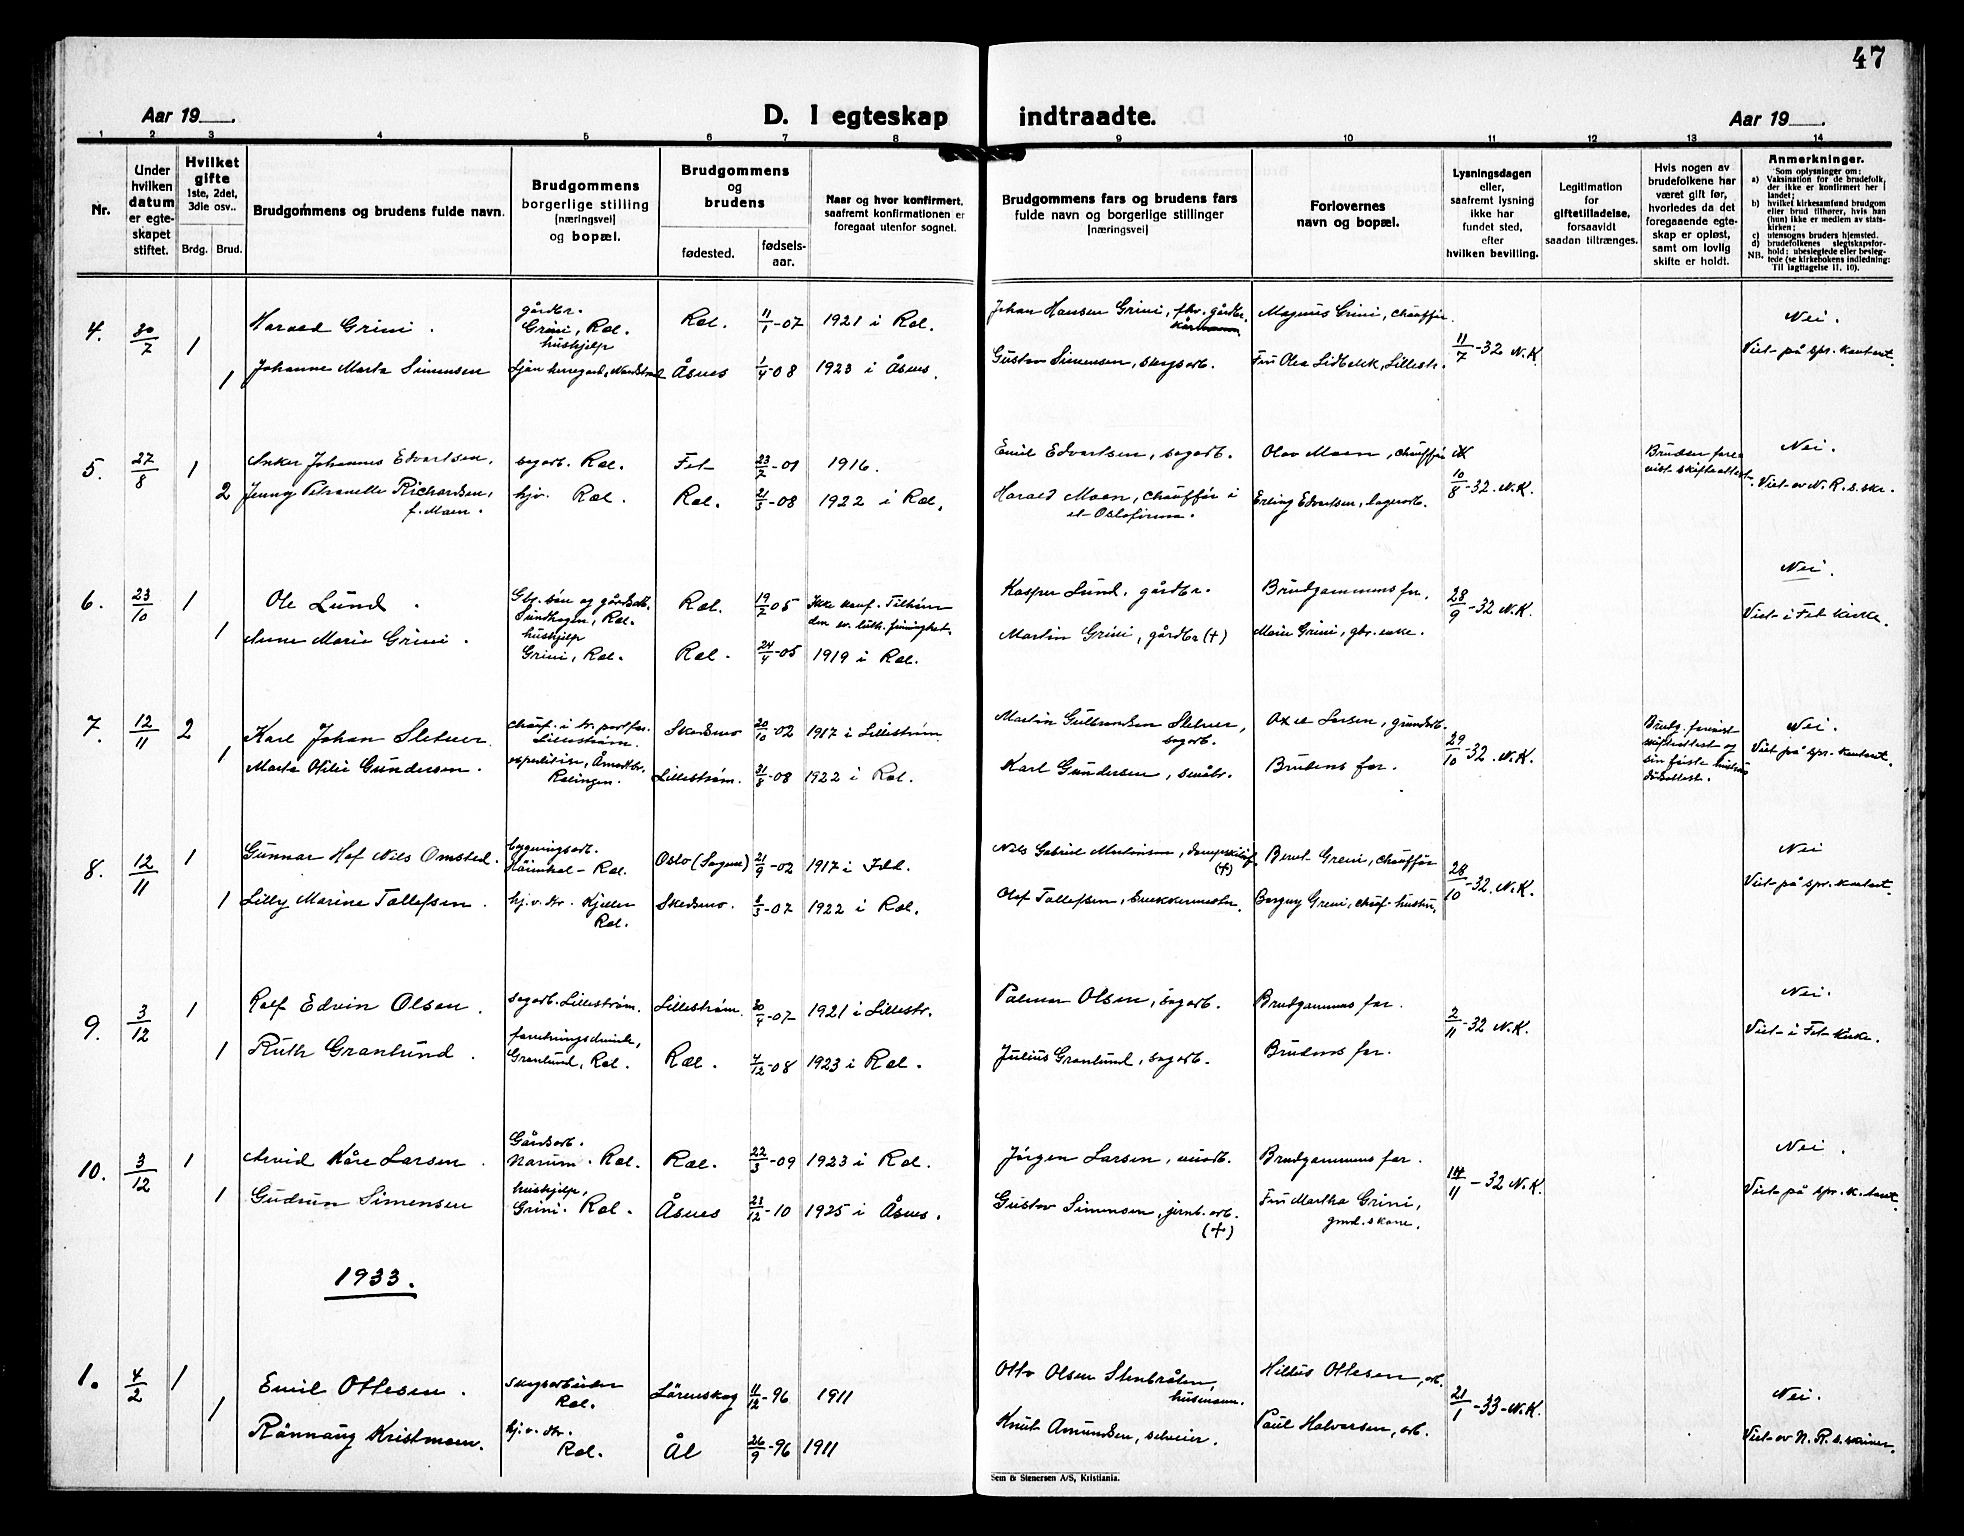 47
Aar 19 . D. I egteskap indtraadte. Aar 19 .
1 2 3 4 5 6 7 8 9 10 11 12 13 14
Nr.
Under hvilken datum er egteskapet stiftet.
Hvilket gifte
1ste, 2det, 3die osv..
Brdg. Brud.
Brudgommens og brudens fulde navn.
Brudgommens
borgerlige stilling
(næringsvei)
og bopæl.
Brudgommens
og
brudens
fødested. fødselsaar.
Naar og hvor konfirmert,
saafremt konfirmationen er
foregaat utenfor sognet.
Brudgommens fars og brudens fars
fulde navn og borgerlige stillinger
(næringsvei)
Forlovernes
navn og bopæl.
Lysningsdagen
eller,
saafremt lysning
ikke har
fundet sted,
efter
hvilken bevilling.
Legitimation
for
giftetilladelse,
forsaavidt
saadan tiltrænges.
Hvis nogen av
brudefolkene har
været gift før,
hvorledes da det
foregaaende egteskap er opløst,
samt om lovlig
skifte er holdt.
Anmerkninger.
Som oplysninger om:
a) Vaksination for de brudefolk,
der ikke er konfirmert her i
landet;
b) hvilket kirkesamfund brudgom
eller brud tilhører, hvis han
(hun) ikke er medlem av statskirken;
c) utensogns bruders hjemsted.
d) brudefolkenes slegtskapsforhold: ubeslegtede eller beslegtede (se kirkebokens indledning:
NB. Til Iagttagelse II. 10).
4. 30/7 1 Harald Grini. gårdbr. Grini, Ræl. Ræl. 11/1-07 1921 i Ræl. Johan Hansen Grini, fhv. gårdbr. Magnus Grini, chauffør. 11/7-32 N.K. Nei.
1 Johanne Marta Simensen hushjelp Ljan herregård, Nordstrand Åsnes 1/4-08 1923 i Åsnes. Gustav Simensen, skogsarb. Fru Olea Lidbekk, Lillestr. Viet på spr. kontoret.
5. 27/8 1 Anker Johannes Edvartsen, sagarb. Ræl. Fet 23/2-01 1916. Emil Edvartsen, sagarb. Olav Moen, chauffør 10/8-32. N.K. Nei.
2 Jenny Petronelle Richardsen, f. Moen. hjv. Ræl. Ræl. 21/3-08 1922 i Ræl. Harald Moen, chauffør i et Oslofirma. Erling Edvartsen, lagerarb. Bruden forevist skifteattest. Viet av N. R. s. skr.
6. 23/10 1 Ole Lund. Gbr. søn og gårdsarb. Sundhagen, Ræl. Ræl. 19/2-05 Ikke konf. Tilhører den ev. luth. frimenighet. Kasper Lund, gårdbr. Brudgommens far, 28/9-32 N.K. Nei.
1 Anne Marie Grini. hushjelp Grini, Ræl. Ræl. 24/4-05 1919 i Ræl. Martin Grini, gårdbr (+) Marie Grini, gbr. enke. Viet i Fet kirke.
7. 12/11 2 Karl Johan Sletner. Lillestrøm. Skedsmo 20/10-02 1917 i Lillestrøm Martin Gulbrandsen Sletner, sagarb. Axel Larsen, grundarb. 29/10-32. N.K. Nei.
1 Marta Otilie Gundersen. Rælingen. Lillestrøm. 21/8-08 1922 i Ræl. Karl Gundersen, småbr. Brudens far. Viet på spr. kontoret.
8. 12/11 1 Gunnar Hof Nils Omsted. bygningsarb. Ræl. Oslo (Sagene) 21/9-02 1917 i Idd. Nils Gabriel Martinsen, (+) Bernt Greni, chauffør 28/10-32. N.K. Nei
1 Lilly Marine Tollefsen. hj. v. str. Kjeller Ræl. Skedsmo. 8/3-07 1922 i Ræl. Olaf Tollefsen, brukkermester. Borgny Greni, chauf. hustru. Viet på spr. kontoret.
9. 3/12 1 Rolf Edvin Olsen. sagarb. Lillestrøm. Lillestrøm. 30/4-07 1921 i Lillestr. Palmar Olsen, sagarb. Brudgommens far. 2/11-32 N.K. Nei.
1 Ruth Granlund. forretningsdrivende, Granlund, Ræl. Ræl. 7/12-08 1923 i Ræl. Julius Granlund, sagarb. Brudens far. Viet i Fet kirke.
10. 3/12 1 Arvid Kåre Larsen. Gårdsarb. Narum. Ræl. Ræl. 22/3-09 1923 i Ræl. Jörgen Larsen, murarb. Brudgommens far. 14/11-32 N.K. Nei.
1 Gudrun Simensen hushjelp, Grini. Ræl. Åsnes 23/12-10 1925 i Åsnes. Gustav Simensen, jernb. arb. (+) Fru Martha Grini, Viet på spr. kontoret.
1933.
1. 4/2 1 Emil Ottesen. skogsarbeider Ræl. Lörenskog 11/12-96 1911 Otto Olsen Stenbråten, husmann. Hilbus Ottesen, arb. 21/1-33-N.K. Nei.
1 Rönnaug Kristmoen. hj. v. str. Ræl. Ål 26/9-96 1911 Knut Amundsen, selveier. Paul Halvorsen, arb. Viet av N. R. s. skriver.
Sem & Stenersen A/S, Kristiania.